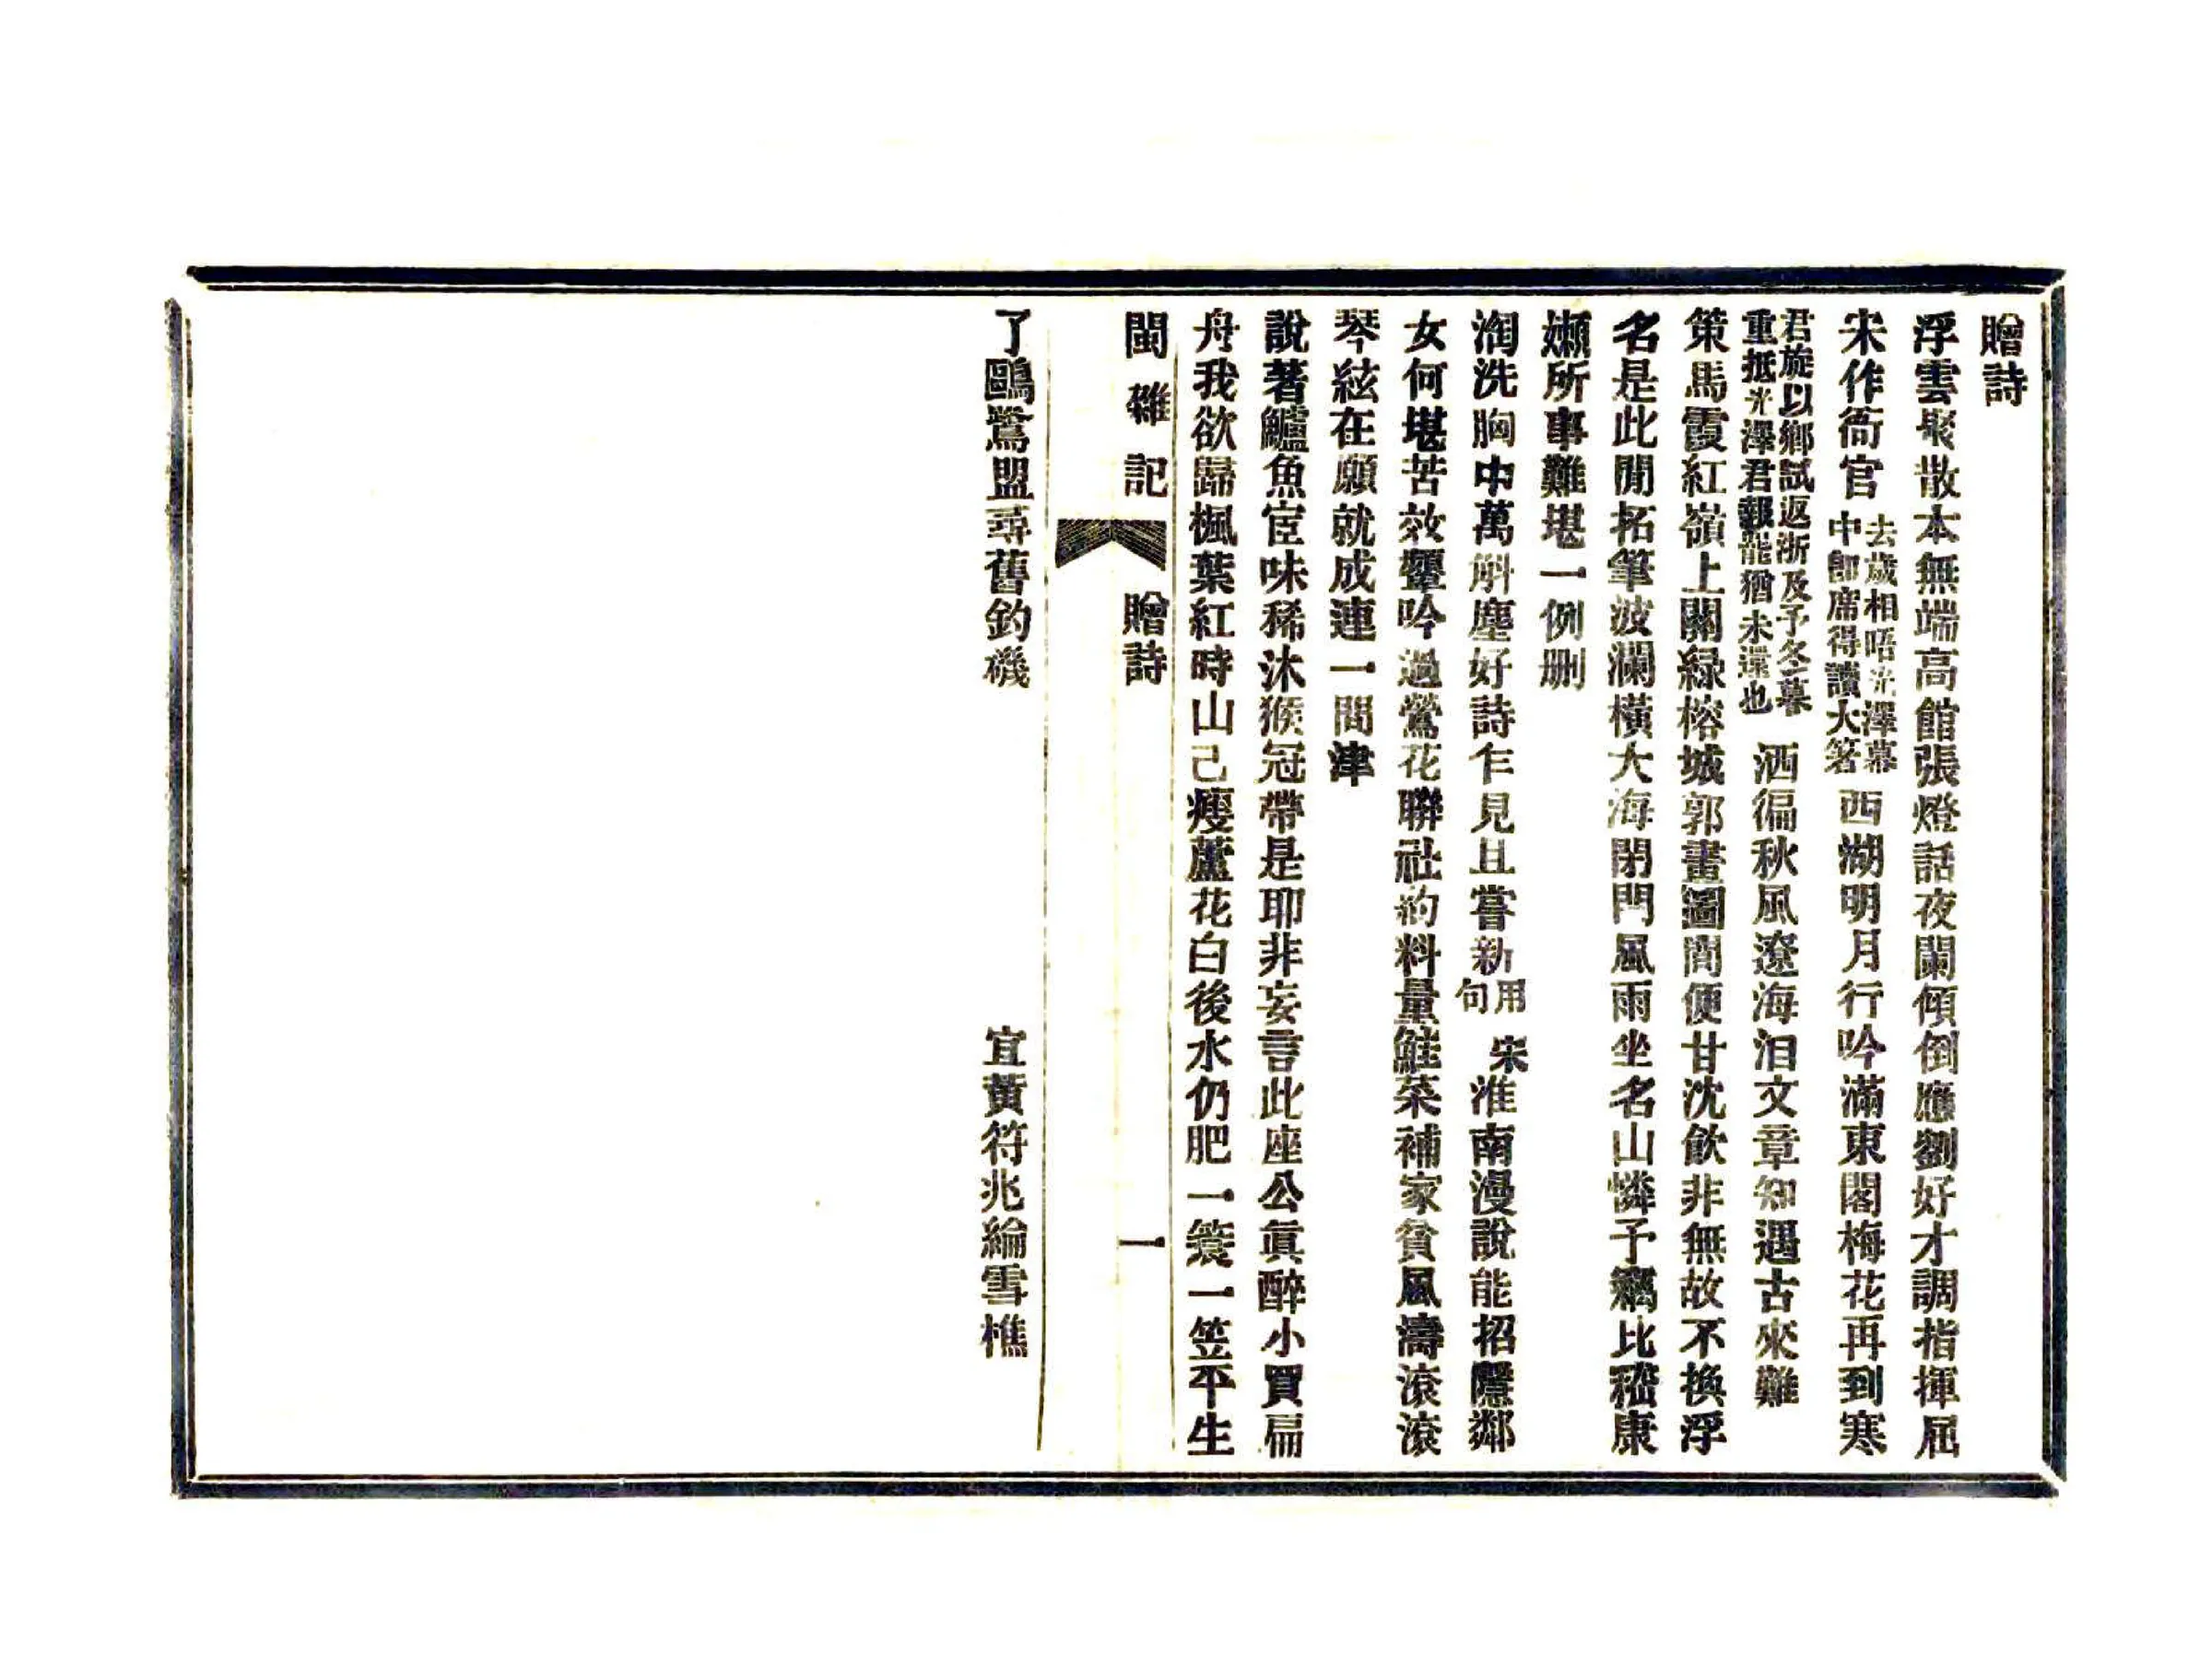 贈詩
浮雲聚散本無端高館張燈話夜闌傾倒應劉好才調指揮屈
宋作衙官去歲相唔光澤幕中卽席得讀大箸西湖明月行吟滿東閣梅花再到寒
君旋以鄉試返浙及予冬暮重抵光澤君報罷猶未還也洒徧秋風遼海泪文章知遇古來難
策馬霞紅嶺上關緑榕城郭畫圖間便甘沈飲非無故不換浮
名是此閒拓筆波瀾橫大海閉門風雨坐名山憐予竊比嵇康
嬾所事難堪一例删
洶洗胸中萬斛塵好詩乍見且嘗新用宋句淮南漫說能招隱鄰
女何堪苦效顰吟過鶯花聯社約料量鮭菜補家貧風濤滾滾
琴絃在願就成連一問津
說著鱸魚宦味稀沐猴冠帶是耶非妄言此座公眞醉小買扁
舟我欲歸楓葉紅時山己瘦蘆花白後水仍肥一簑一笠平生
閩雜記 贈詩 一
了鷗鷺盟尋舊釣磯 宜黃符兆綸雪樵